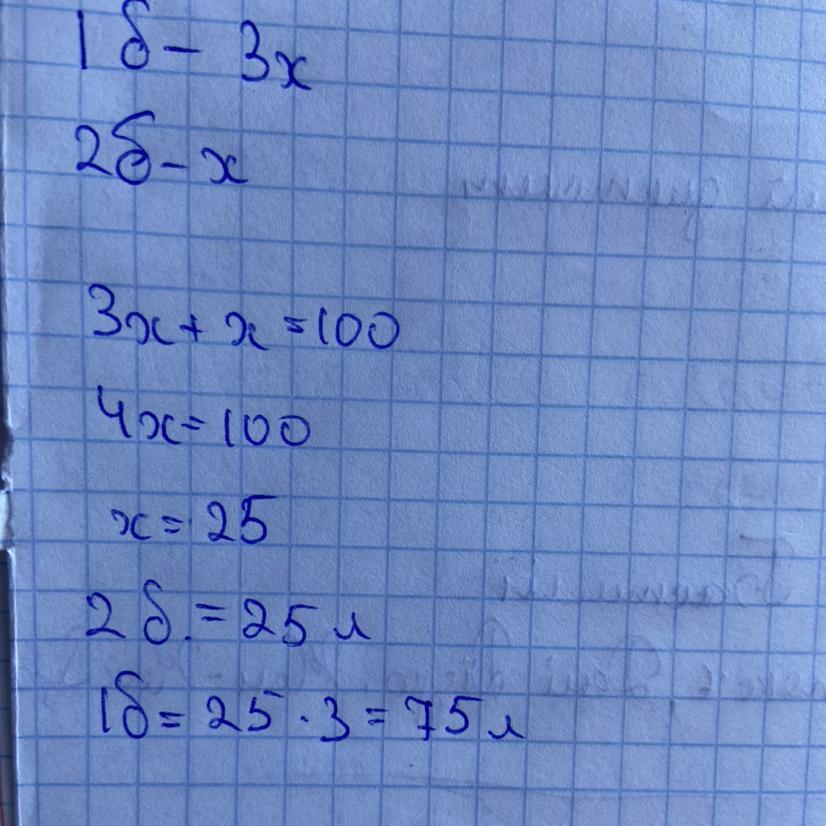 1б - 3х
2б - х
3х + х = 100
4х = 100
х = 25
2 б. = 25 л
1б = 25 · 3 = 75 л